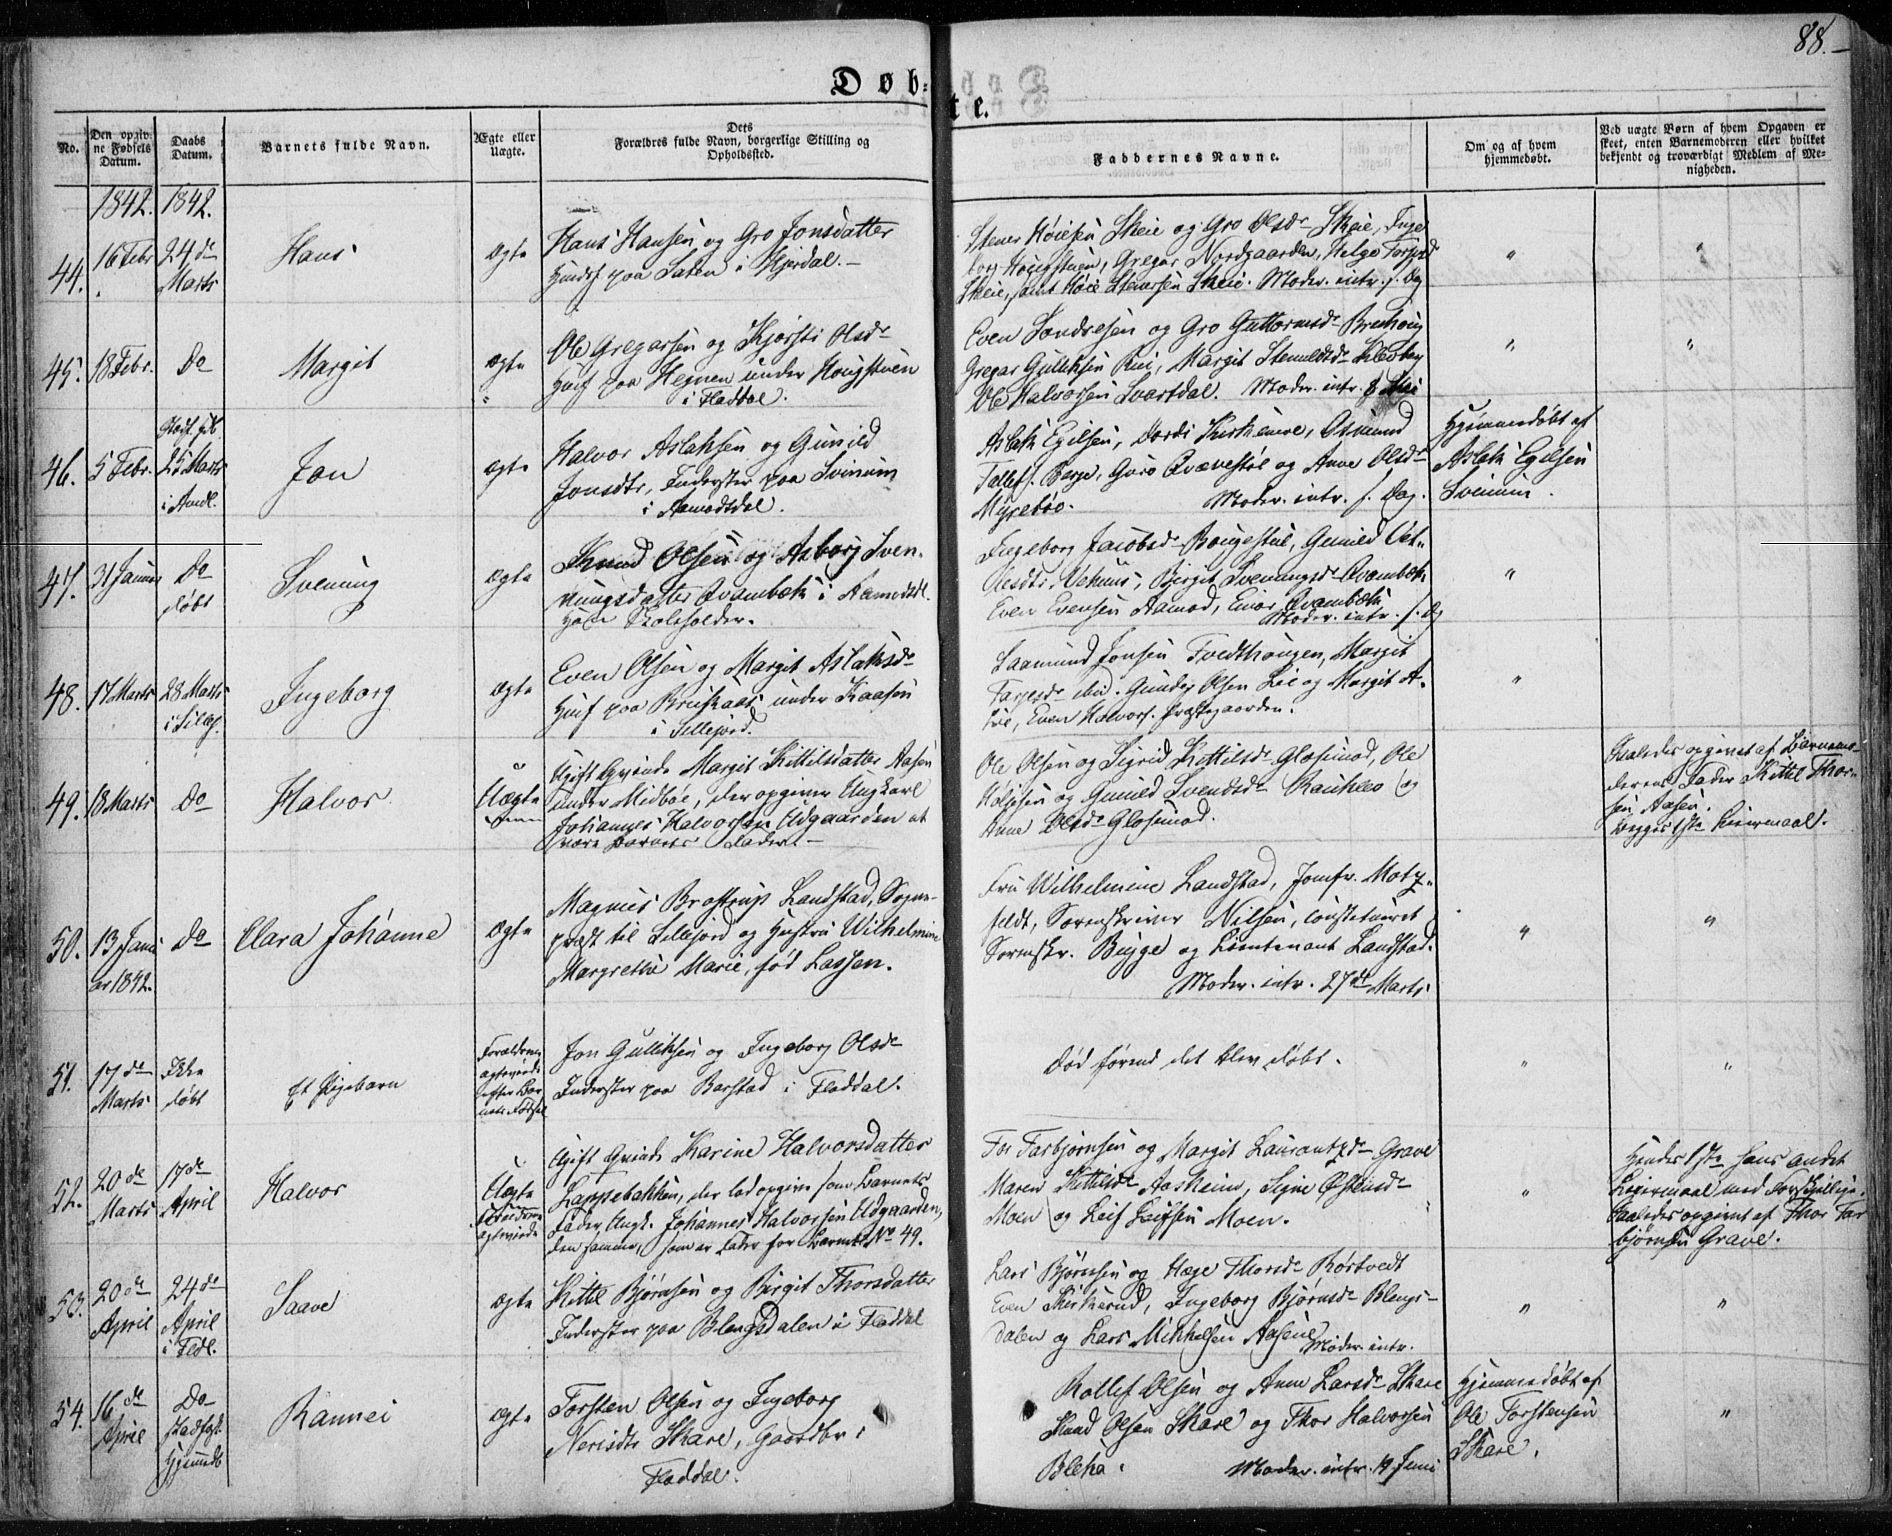 88.
Døbte.
No.
Den opgivne Fødsels Datum.
Daabs Datum.
Barnets fulde Navn.
Ægte eller Uægte.
Dets Forældres fulde Navn, borgerlige Stilling og Opholdssted.
Faddernes Navne.
Om og af hvem hjemmedøbt.
Ved uægte Børn af hvem Opgaven er skeet, enten Barnemoderen eller hvilket bekjendt og troværdigt Medlem af Menigheden.
1842. 1842.
44.
16 Febr
24de
Marts
Hans
ægte
Hans Hansen og Gro Jonsdatter
paa Saten i Hjerdal.
Stener Høiesen Skeie og Gro Olsdr Skeie, Inge
borg Hougstuen, Gregar Nordgaarden, Helge
Skeie, samt Høie Stenersen Skeie. Moder. intr. s. Dag
45.
18 Febr.
Do
Margit
ægte
Ole Gregarsen og Kjersti Olsdr
Huusf paa Hegnen under Hougstuen
i Fladdal.
Even Sondresen og Gro Guttormsdr
Gregar Gulliksen Rui, Margit
Ole Halvorsen Svartdal. Moder. intr.
46.
5 Febr.
25 Marts
i Amdl.
Jon
ægte
Halvor Aslaksen og Gunild
Jonsdtr, Inderster paa Svinum
i Aamodtsdal.
Aslak Egilsen, Dordi Kirkemoe, Asmund
Tallefs. Berge, Guro Qvævestøl og Anne Olsdr
Myrebøe. Moder. intr. s. Dag.
Hjemmedøbt af
Aslak Egilsen
Svinum.
47.
31 Januar
Do
døbt
Svenung
ægte
Knud Olsen og Asborg Sven-
nungsdatter Qvambæk i Aamodtsdl.
Skoleholder.
Ingeborg Jacobsdr Bougestøl, Gunild
Vehuus, Birgit Svenungsdr Qvambæk
Even Evensen Aamod, Einar Qvambæk
Moder. intr. s. Dg
48.
17 Marts
28 Marts
i Sillej.
Ingeborg
ægte
Even Olsen og Margit Aslaksdr
Huusf paa Bruskaas under Kaasen
i Sillejord.
Saamund Jonsen Tvedthougen, Margit
Tarjesdr ibid. Gunder Olsen Lie og Margit
Lie, Even Halvors. Præstegaarden.
49.
18 Marts
Do
Halvor
Uægte
Ugift Qvinde Margit Kittilsdatter Aasen
under Midbøe, der opgiver Ungkarl
Johannes Halvorsen Udgaarden at
være Barnets Fader.
Ole Olsen og Sigrid Kettilsdr Glosimod, Ole
og Gunild Svendsdr Raukleo og
Anne Olsdr Glosimod.
Saaledes opgivet af Barnemo-
derens Fader Kittil Thor-
sen Aasen.
Begges 1ste Leiermaal.
50.
13 Janu
ar 1842.
Do
Clara Johanne
ægte
Magnus Brostrup Landstad, Sogne-
præst til Sillejord og Hustru Wilhelmine
Margrethe Marie, fød Lassen.
Fru Wilhelmine Landstad, Jomfr. Motz-
feldt, Sorenskriver Nilsen, constitueret
Sorenskr. Bugge og Lieutenant Landstad.
Moder. intr. 27de Marts
51.
17de
Marts
Ikke
døbt
Et Pigebarn
Forældrene
ægteviede
efter Bar
nets Fødsel
Jon Gulliksen og Ingeborg Olsdr
Inderster paa Barstad i Fladdal.
Død førend det blev døbt.
52.
20de
Marts
17de
April
Halvor
Uægte
Ugift Qvinde Karine Halvorsdatter
Lappebakken, der lod opgive som Barnets
Fader Ungk. Johannes Halvorsen Udgaarden,
den samme, som er Fader for Barnet No 49.
Tor Tarbjørnsen og Margit Laurantzdr Grave
Maren Kittilsdr Aasheim, Signe
Moen og Leif Leifsen Moen.
Hendes 1ste hans andet
Leiermaal med forskjellige.
Saaledes opgivet af Thor Tar
bjørnsen Grave.
53.
20de
April
24de
April
i Fldl.
Saave
ægte
Kittil Bjørnsen og Birgit Thorsdatter
Inderster paa Blengsdalen i Fladdal
Lars Bjørnsen og Hæge Thorsdr Rørtvedt
Even Kirkerud, Ingeborg Bjørnsdr Blengs-
dalen og Lars Mikkelsen Aasene
Moder. intr.
54.
16de
April
Do
stadfægt.
Hjemmedb
Rannei
ægte
Torsten Olsen og Ingeborg
Nerisdtr Skare, Gaardbr.
Fladdal.
Rollef Olsen og Anne Larsdr Skare
Knud Olsen Skare og Thor Halvorsen
Bleka. Moder. intr. 19 Juni
Hjemmedøbt af
Ole Torstensen
Skare.